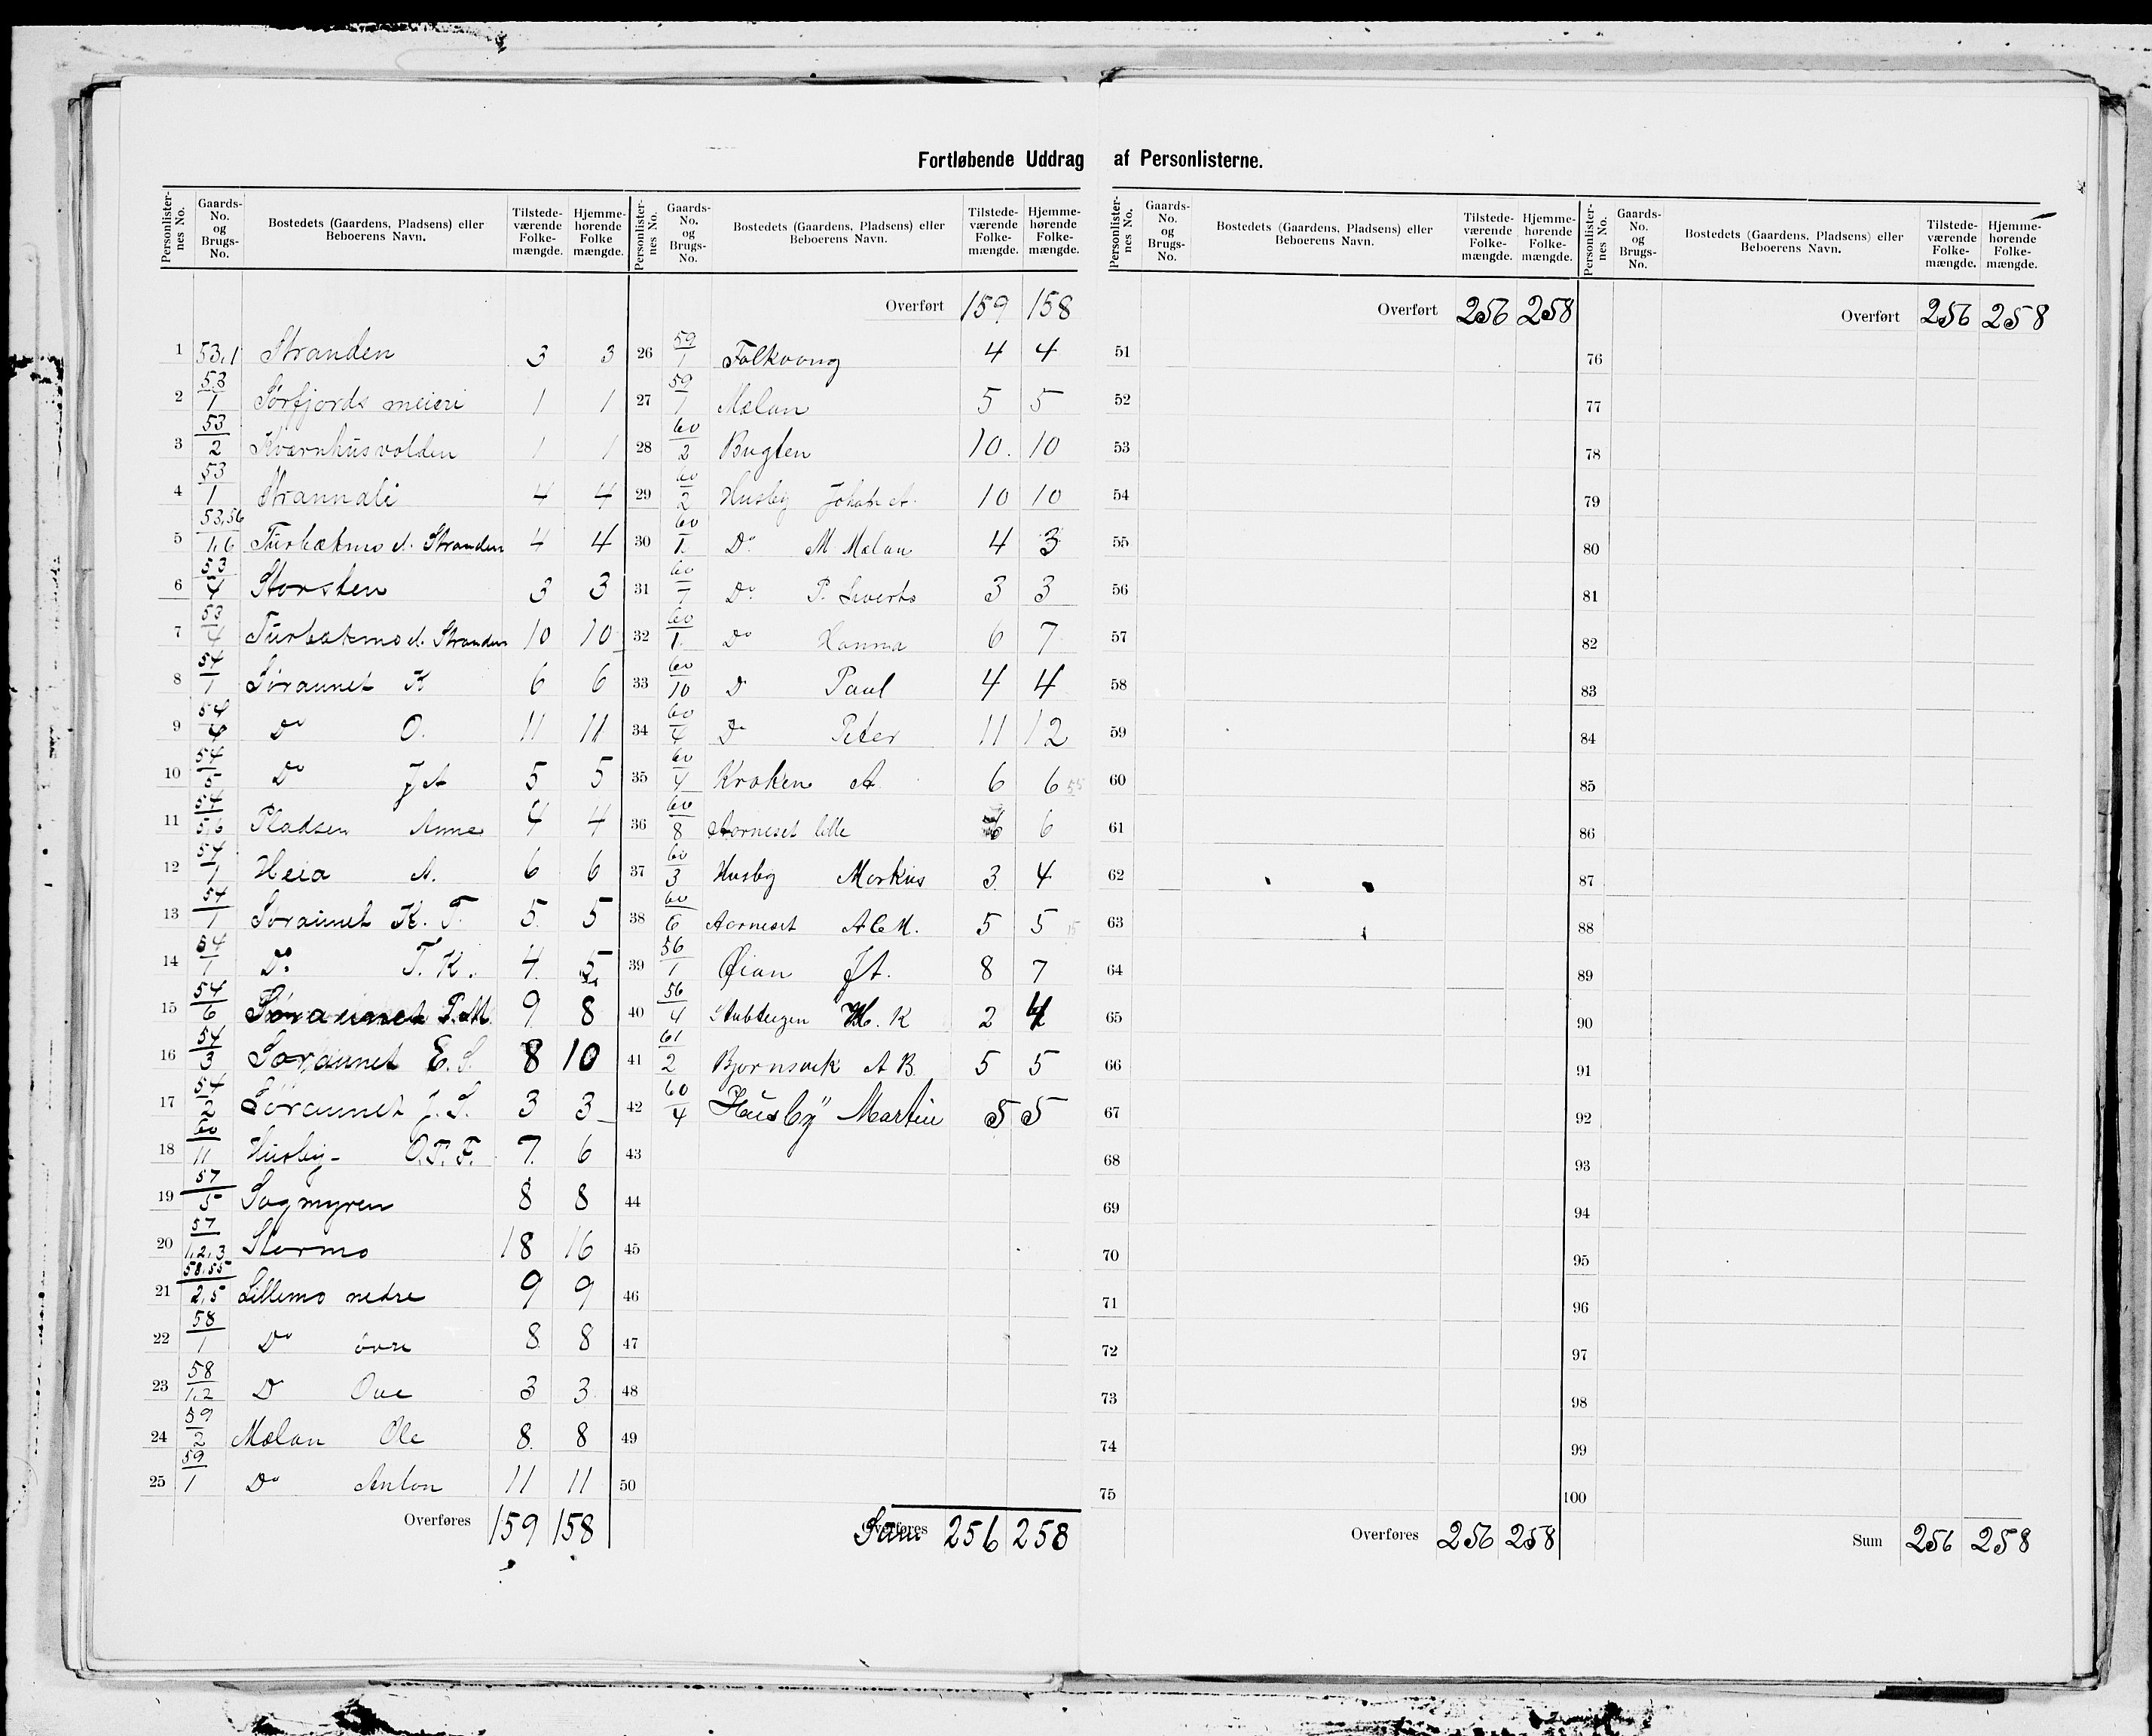 Fortløbende Uddrag af Personlisterne.
Personlister-nes No. Gaards-No. og Brugs-No. Bostedets (Gaardens, Pladsens) eller Beboerens Navn. Tilstede-værende Folke-mængde. Hjemme-hørende Folke mængde.
1 53,1 Stranden 3 3
2 53/1 Sørfjords meieri 1 1
3 53/2 Kværnhusvolden 1 1
4 53/1 Strannali 4 4
5 53,56/1,6 Turbækmo v. Stranden 4 4
6 53/4 Storsten 3 3
7 53/4 Turbækmo v. Stranden 10 10
8 54/1 Søraunet K 6 6
9 54/4 Do O. 11 11
10 54/5 Do J A 5 5
11 54/5,6 Pladsen Anne 4 4
12 54/1 Heia A. 6 6
13 54/1 Søraunet K. T. 5 5
14 54/1 Do T. K. 4 5
15 54/6 Søraunet P. M. 9 8
16 54/3 Søraunet E. S. 8 10
17 54/2 Søraunet J. S. 3 3
18 60/11 Husby- O.P.F. 7 6
19 57/5 Sagmyren 8 8
20 57/1,2,3 Stormo 18 16
21 58,55/2,5 Lillemo nedre 9 9
22 58/1 Do øvre 8 8
23 58/1,2 D Ove 3 3
24 59/2 Mælan Ole 8 8
25 59/1 Do Anton 11 11
Overføres 159 158
Personlister-nes No. Gaards-No. og Brugs-No. Bostedets (Gaardens, Pladsens) eller Beboerens Navn. Tilstede-værende Folke-mængde. Hjemme-hørende Folke-mængde.
Overført 159 158
26 59/1 Falkvang 4 4
27 59/1 Mælan 5 5
28 60/2 Bugten 10. 10
29 60/2 Husby Johan A. 10 10
30 60/1 Do M Mælan 4 3
31 60/7 Do P. Siverts 3 3
32 60/1 Do Hanna 6 7
33 60/10 D Paul 4 4
34 60/4 Do Peter 11 12
35 60/4 Kroken A 6 6
36 60/8 Aarneset lille 6 6
37 60/3 Husby Markus 3 4
38 60/6 Aarneset A C M. 5 5
39 56/1 Øian J A. 8 7
40 56/4 H. K 2 4
41 61/2 Bjørnsvik A B. 5 5
42 60/4 Husby Martin 5 5
43
44
45
46
47
48
49
50
Overføres Sum 256 258
Personlister-nes No. Gaards-No. og Brugs-No. Bostedets (Gaardens, Pladsens) eller Beboerens Navn. Tilstede-værende Folke-mængde. Hjemme-hørende Folke-mængde.
Overført 256 258
51
52
53
54
55
56
57
58
59
60
61
62
63
64
65
66
67
68
69
70
71
72
73
74
75
Overføres 256 258
Personlister-nes No. Gaards-No. og Brugs-No. Bostedets (Gaardens, Pladsens) eller Beboerens Navn. Tilstede-værende Folke-mængde. Hjemme-hørende Folke-mængde.
Overført 256 258
76
77
78
79
80
81
82
83
84
85
86
87
88
89
90
91
92
93
94
95
96
97
98
99
100
Sum 256 258